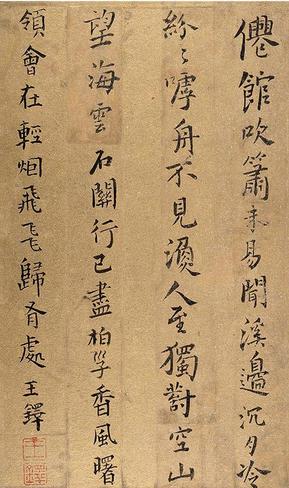 僊館吹簫未易聞溪邊沉月冷
紛〻嘑舟不見澒人至獨對空山
望海雲石關行已盡柏孚香風曙
領會在輕烟飛飞歸有處王鐸